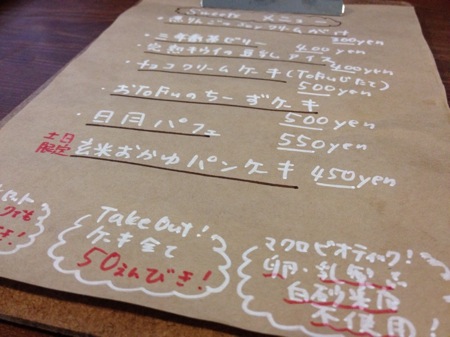 メニュー
三年番茶ゼリー 400yen
完熟キウイの豆乳アイス 400yen
チョコクリームケーキ(Tofuじたて) 500yen
・おTofuのちーずケーキ 500yen
・日月パフェ 550yen
土日限定 玄米おかゆパンケーキ 450yen
Take Out!
ケーキ全て
50えんびき!
マクロビオティック!
卵・乳製品
白砂糖
不使用!